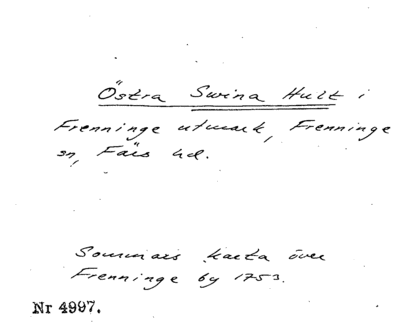 Östra Swina Hult i
Frenninge utmark, Frenninge
sn, Färs hd.
Sommars karta över
Frenninge by 1753.
Nr 4997.